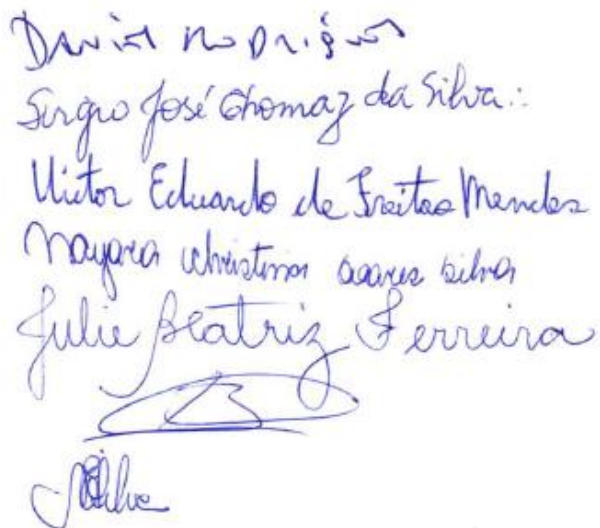 Daniel Rodrigues
Sergio José Thomaz da Silva
Victor Eduardo de Freitas Mendes
Mayara Christina soares silva
Julie Beatriz Ferreira